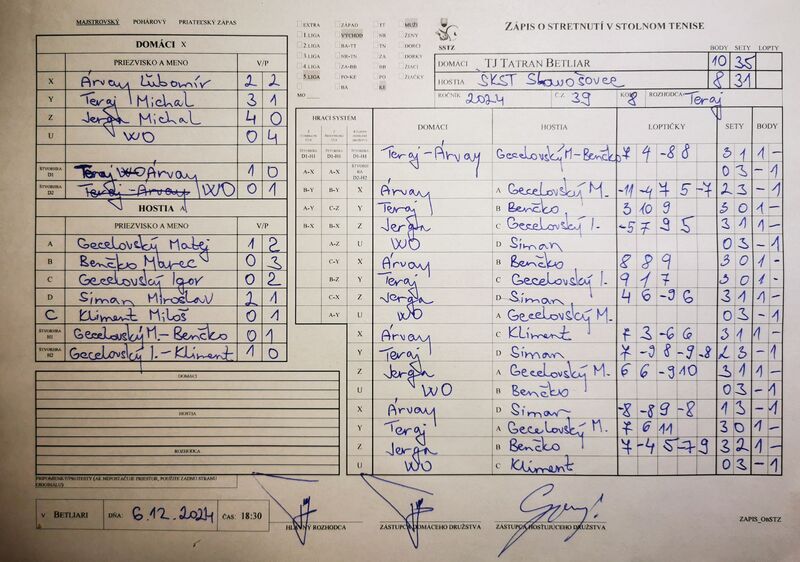 MAJSTROVSKÝ POHÁROVÝ PRIATEĽSKÝ ZÁPAS
DOMÁCI X
PRIEZVISKO A MENO V/P
X Árvay Ľubomír 2 2
Y Teraj Michal 3 1
Z Jerga Michal 4 0
U WO 0 4
ŠTVORHRA D1 Teraj Árvay 1 0
ŠTVORHRA D2 WO 0 1
HOSTIA A
PRIEZVISKO A MENO V/P
A Gecelovský Matej 1 2
B Benčko Marec 0 3
C Gecelovský Igor 0 2
D Siman Miroslav 2 1
C Kliment Miloš 0 1
ŠTVORHRA H1 Gecelovský M.-Benčko 0 1
ŠTVORHRA H2 Gecelovský I.-Kliment 1 0
DOMÁCI
HOSTIA
ROZHODCA
PRIPOMIENKY/PROTESTY (AK NEPOSTAČUJE PRIESTOR, POUŽITE ZADNÚ STRANU ORIGINÁLU)
V BETLIARI DŇA: 6.12.2024 ČAS: 18:30
EXTRA ZÁPAD ET MUŽI
1. LIGA VÝCHOD NR ŽENY
2. LIGA BA-TT TN DORCI
3. LIGA NR-TN ZA DORKY
4. LIGA ZA-BB BB ŽIACI
5. LIGA PO-KE PO ŽIAČKY
BA KE
MO
SSTZ
ZÁPIS O STRETNUTÍ V STOLNOM TENISE
BODY SETY LOPTY
DOMÁCI TJ TATRAN BETLIAR 10 35
HOSTIA ŠKST Slavošovce 8 31
ROČNÍK 2024 Č.Z. 39 KOLO 8 ROZHODCA Teraj
HRACÍ SYSTÉM DOMÁCI HOSTIA LOPTIČKY SETY BODY
D1-H1 D1-H1 D1-H1 Teraj-Árvay Gecelovský M-Benčko 7 4 -8 8 3 1 1 -
A-X A-X D2-H2 0 3 - 1
B-Y B-Y X Árvay A Gecelovský M. -11 -4 7 5 -7 2 3 - 1
A-Y C-Z Y Teraj B Benčko 3 10 9 3 0 1 -
B-X B-X Z Jerga C Gecelovský I. -5 7 9 5 3 1 1 -
A-Z U WO D Siman 0 3 - 1
C-Y X Árvay B Benčko 8 8 9 3 0 1 -
B-Z Y Teraj C Gecelovský I. 9 1 7 3 0 1 -
C-X Z Jerga D Siman 4 6 -9 6 3 1 1 -
A-Y U WO A Gecelovský M. 0 3 - 1
X Árvay C Kliment 7 3 -6 6 3 1 1 -
Y Teraj D Siman 7 -9 8 -9 -8 2 3 - 1
Z Jerga A Gecelovský M. 6 6 -9 10 3 1 1 -
U WO B Benčko 0 3 - 1
X Árvay D Siman -8 -8 9 -8 1 3 - 1
Y Teraj A Gecelovský M. 7 6 11 3 0 1 -
Z Jerga B Benčko 7 -4 5 -7 9 3 2 1 -
U WO C Kliment 0 3 - 1
HLAVNÝ ROZHODCA ZÁSTUPCA DOMÁCEHO DRUŽSTVA ZÁSTUPCA HOSŤUJÚCEHO DRUŽSTVA
ZAPIS_OhSTZ